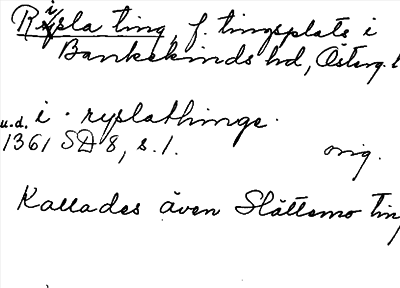 Rispla ting, f. tingsplats i
Bankekinds hd, Österg.l
u.d. i · rysplathinge ·
1361 SD 8, s. 1. orig.
Kallades även Slättemo Ting